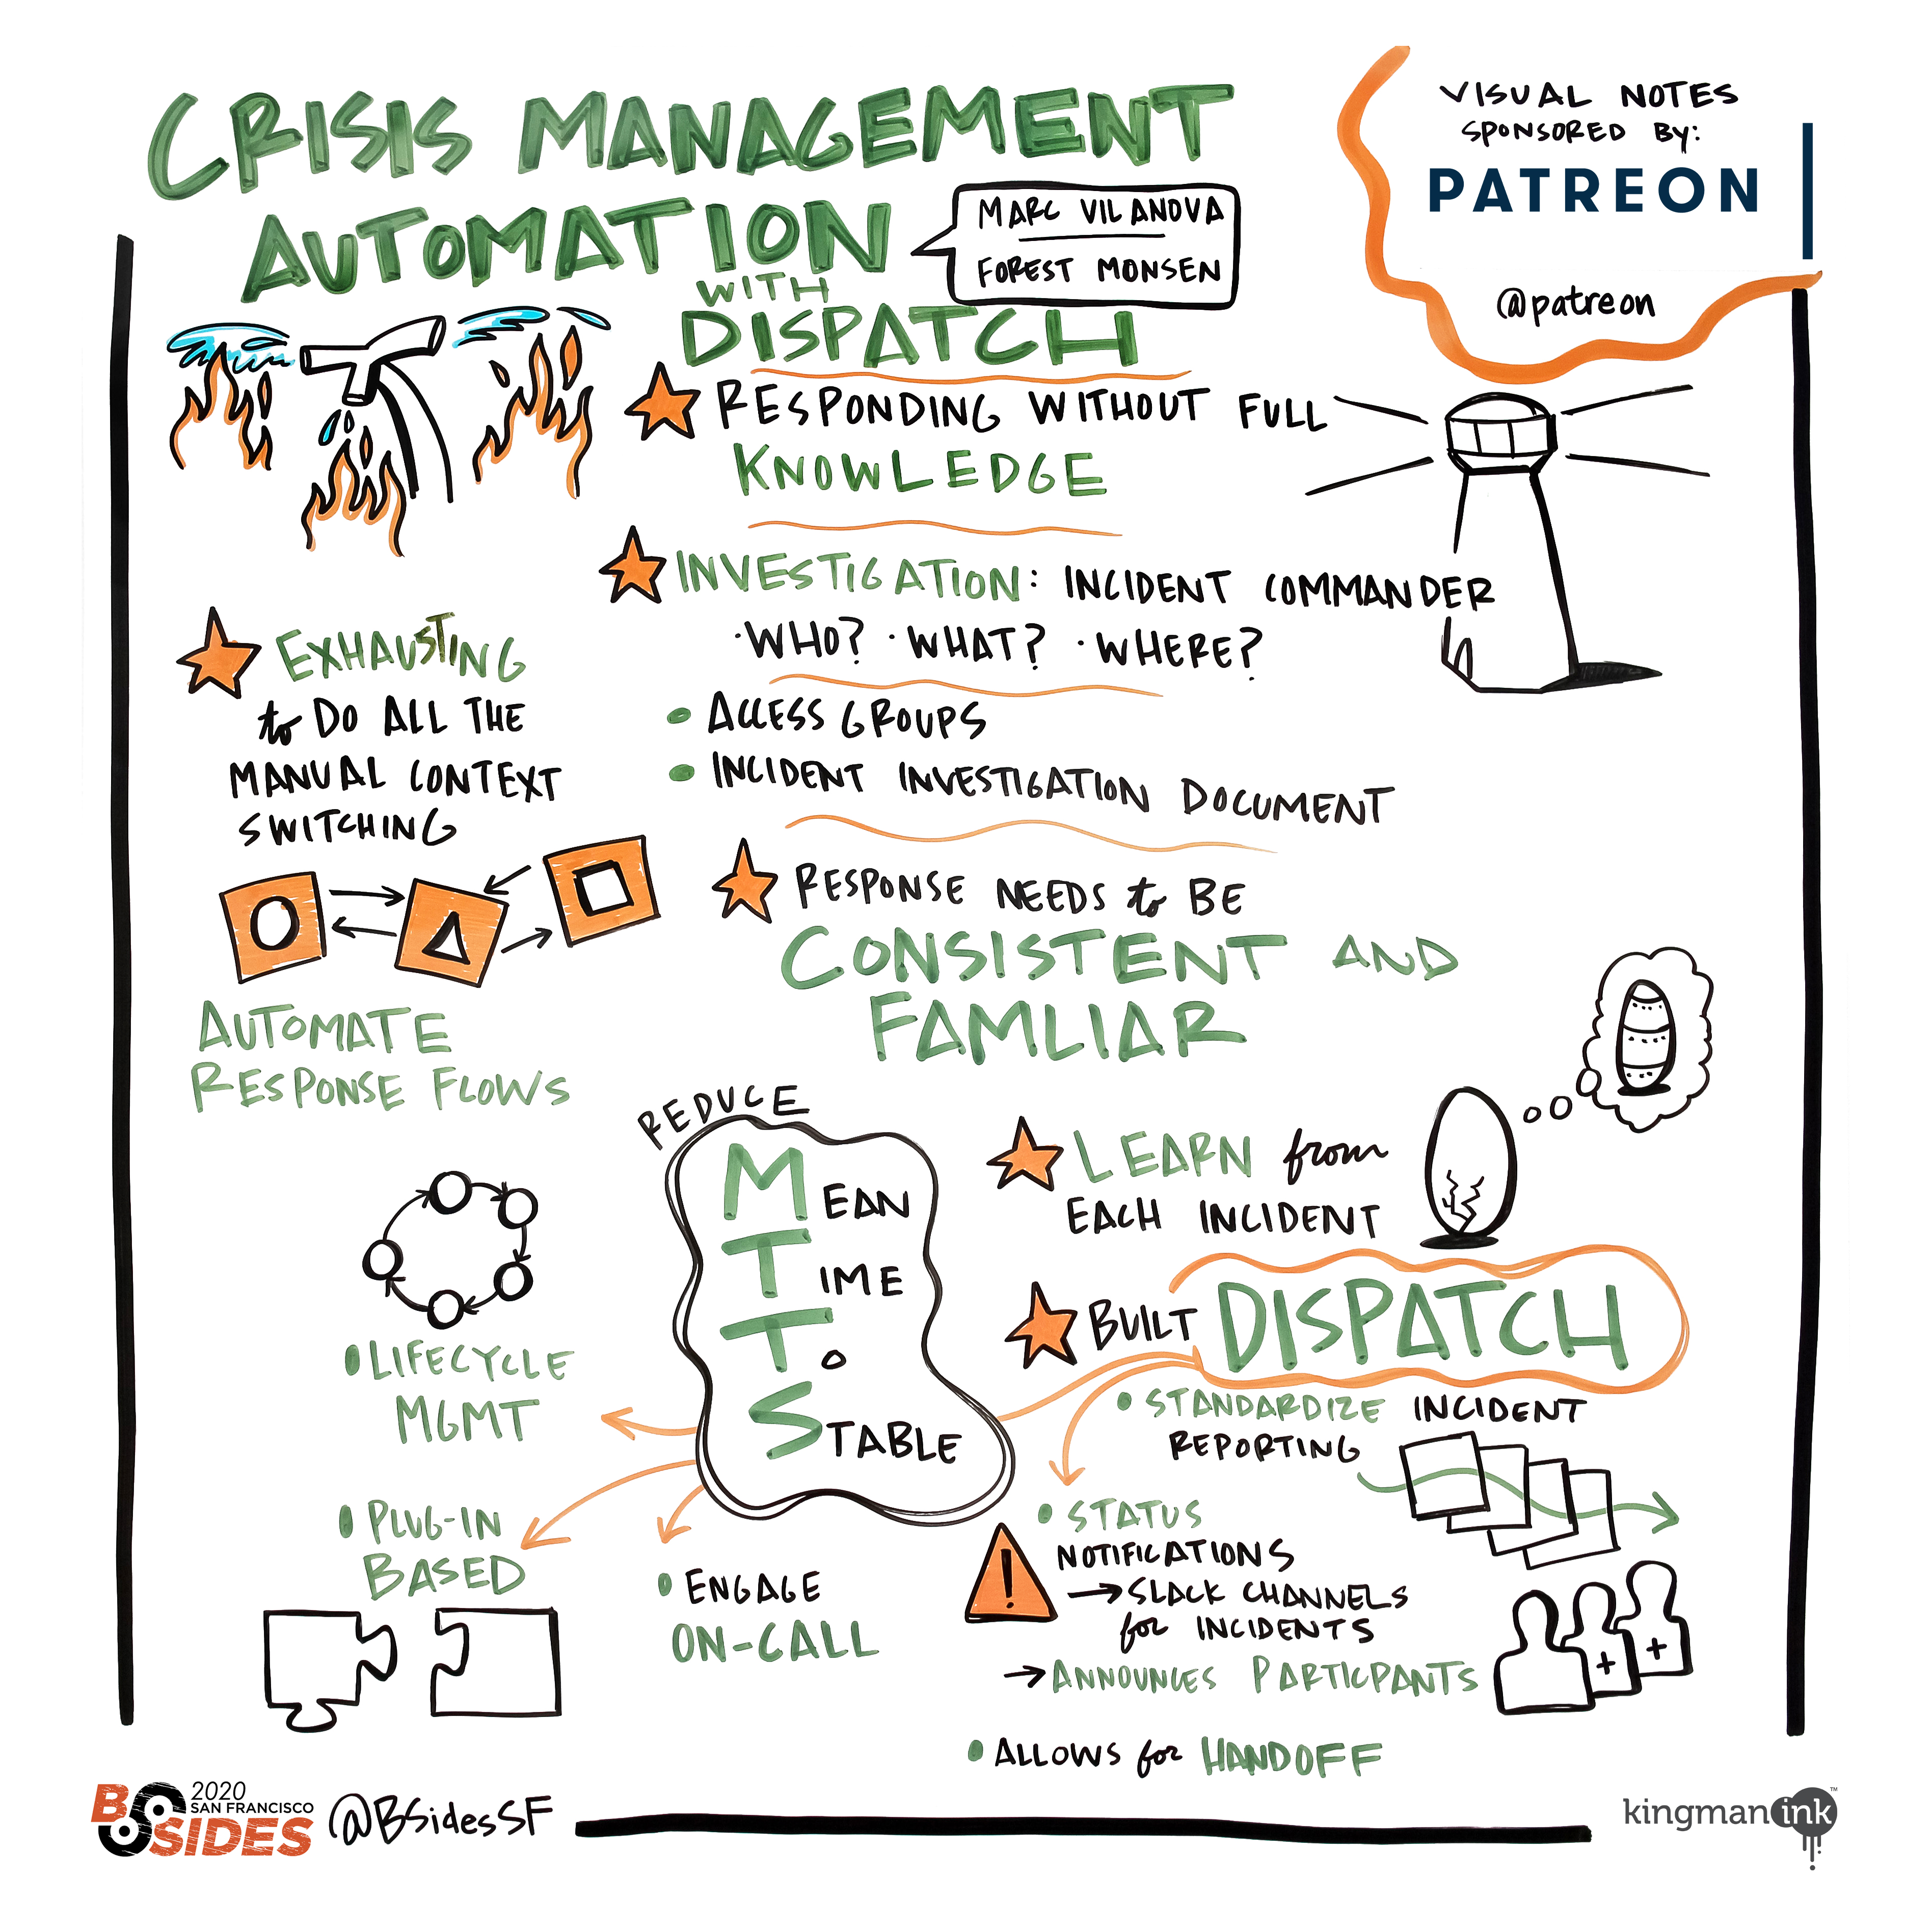 CRISIS MANAGEMENT
AUTOMATION
WITH
DISPATCH
MARC VILANOVA
FOREST MONSEN
VISUAL NOTES
SPONSORED BY:
PATREON
@patreon
RESPONDING WITHOUT FULL
KNOWLEDGE
INVESTIGATION: INCIDENT COMMANDER
·WHO? ·WHAT? ·WHERE?
• ACCESS GROUPS
• INCIDENT INVESTIGATION DOCUMENT
EXHAUSTING
to DO ALL THE
MANUAL CONTEXT
SWITCHING
AUTOMATE
RESPONSE FLOWS
RESPONSE NEEDS to BE
CONSISTENT AND
FAMLIAR
REDUCE
MEAN
TIME
TO
STABLE
LEARN from
EACH INCIDENT
BUILT DISPATCH
• STANDARDIZE INCIDENT
REPORTING
• STATUS
NOTIFICATIONS
→ SLACK CHANNELS
for INCIDENTS
→ ANNOUNCES PARTICPANTS
• ALLOWS for HANDOFF
• LIFECYCLE
MGMT
• PLUG-IN
BASED
• ENGAGE
ON-CALL
2020
SAN FRANCISCO
BSIDES
@BSidesSF
kingman ink™